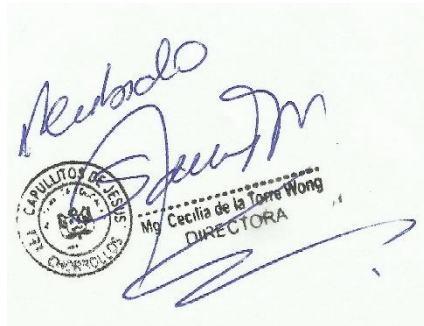 Recibido
CAPULLITOS DE JESUS
CHORRILLOS
Mg. Cecilia de la Torre Wong
DIRECTORA